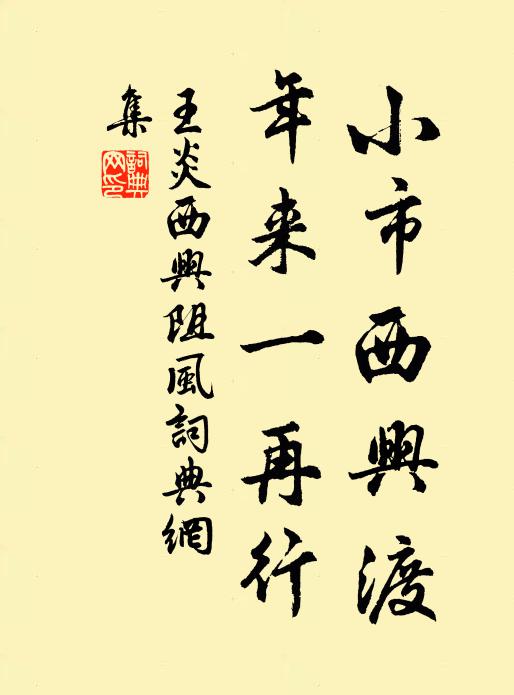 小市西興渡
年来一再行
王炎西興阻風詞典網
集
詞典
网印